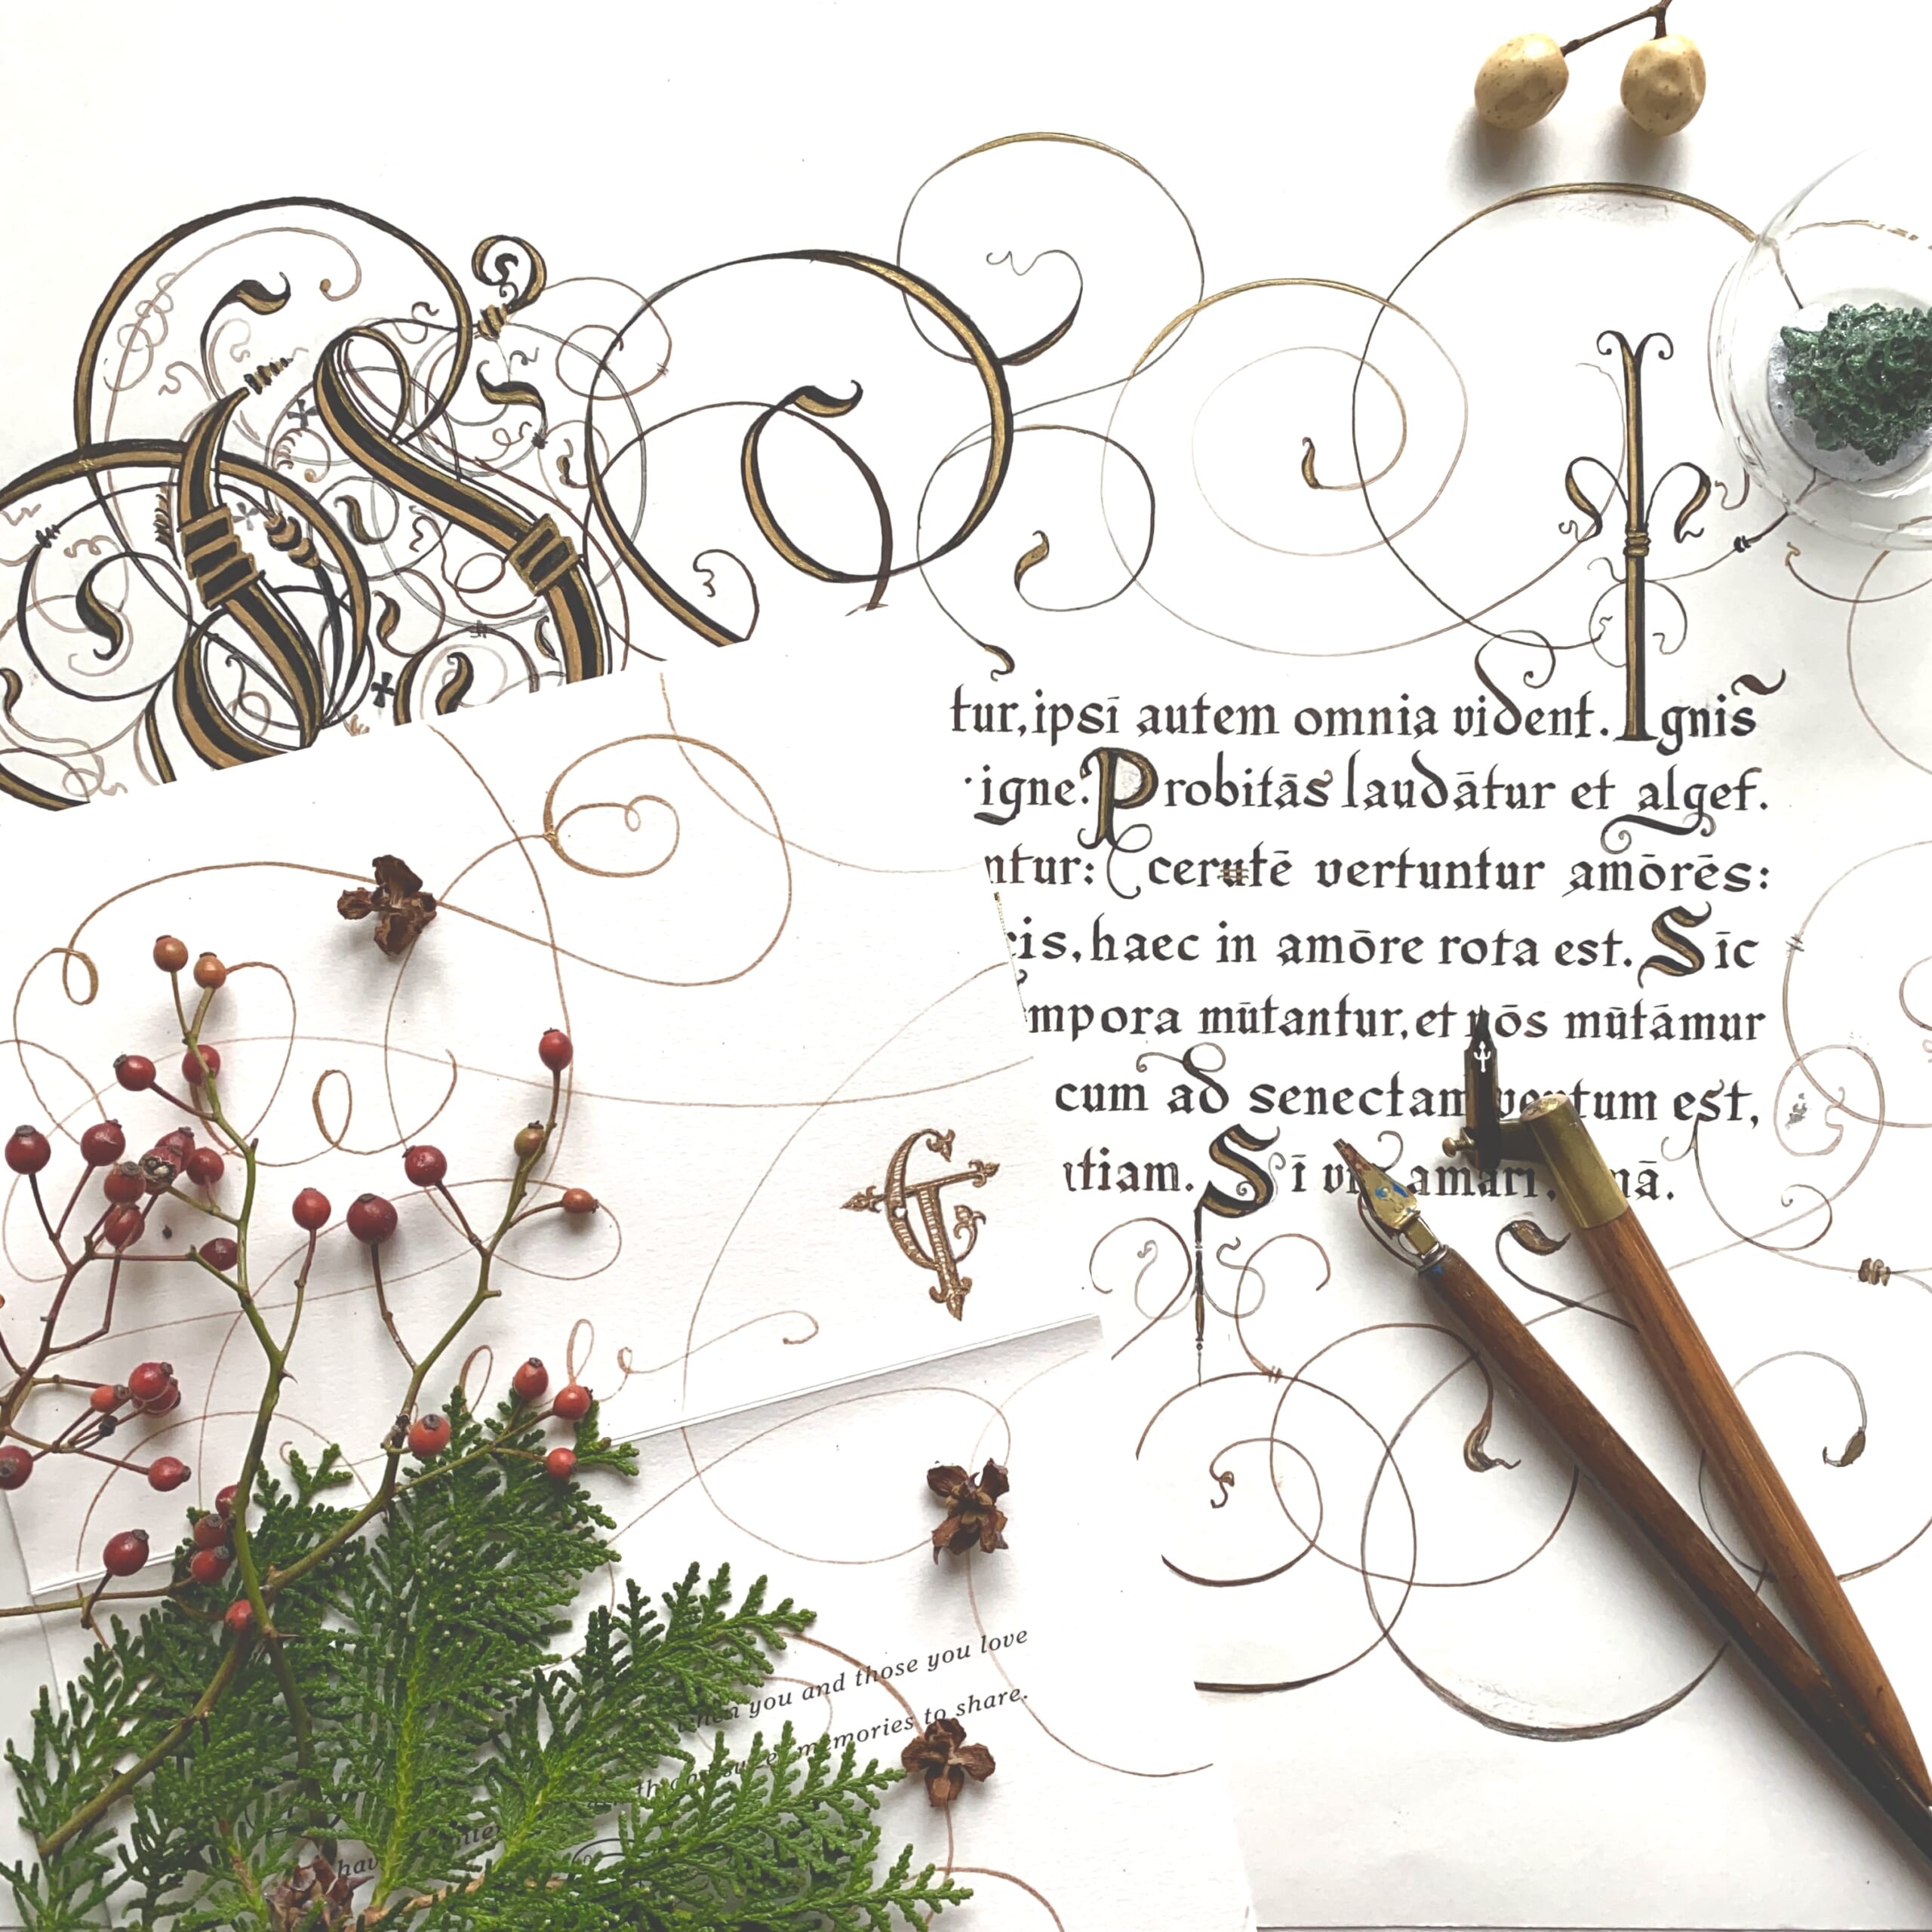 tur, ipsī autem omnia vident. Ignis
igne. Probitās laudātur et alget.
ntur: vertuntur amōrēs:
is, haec in amōre rota est. Sīc
mpora mūtantur, et nōs mūtāmur
cum ad senectam ventum est,
tiam. Sī amārī, mā.
when you and those you love
memories to share.
hav